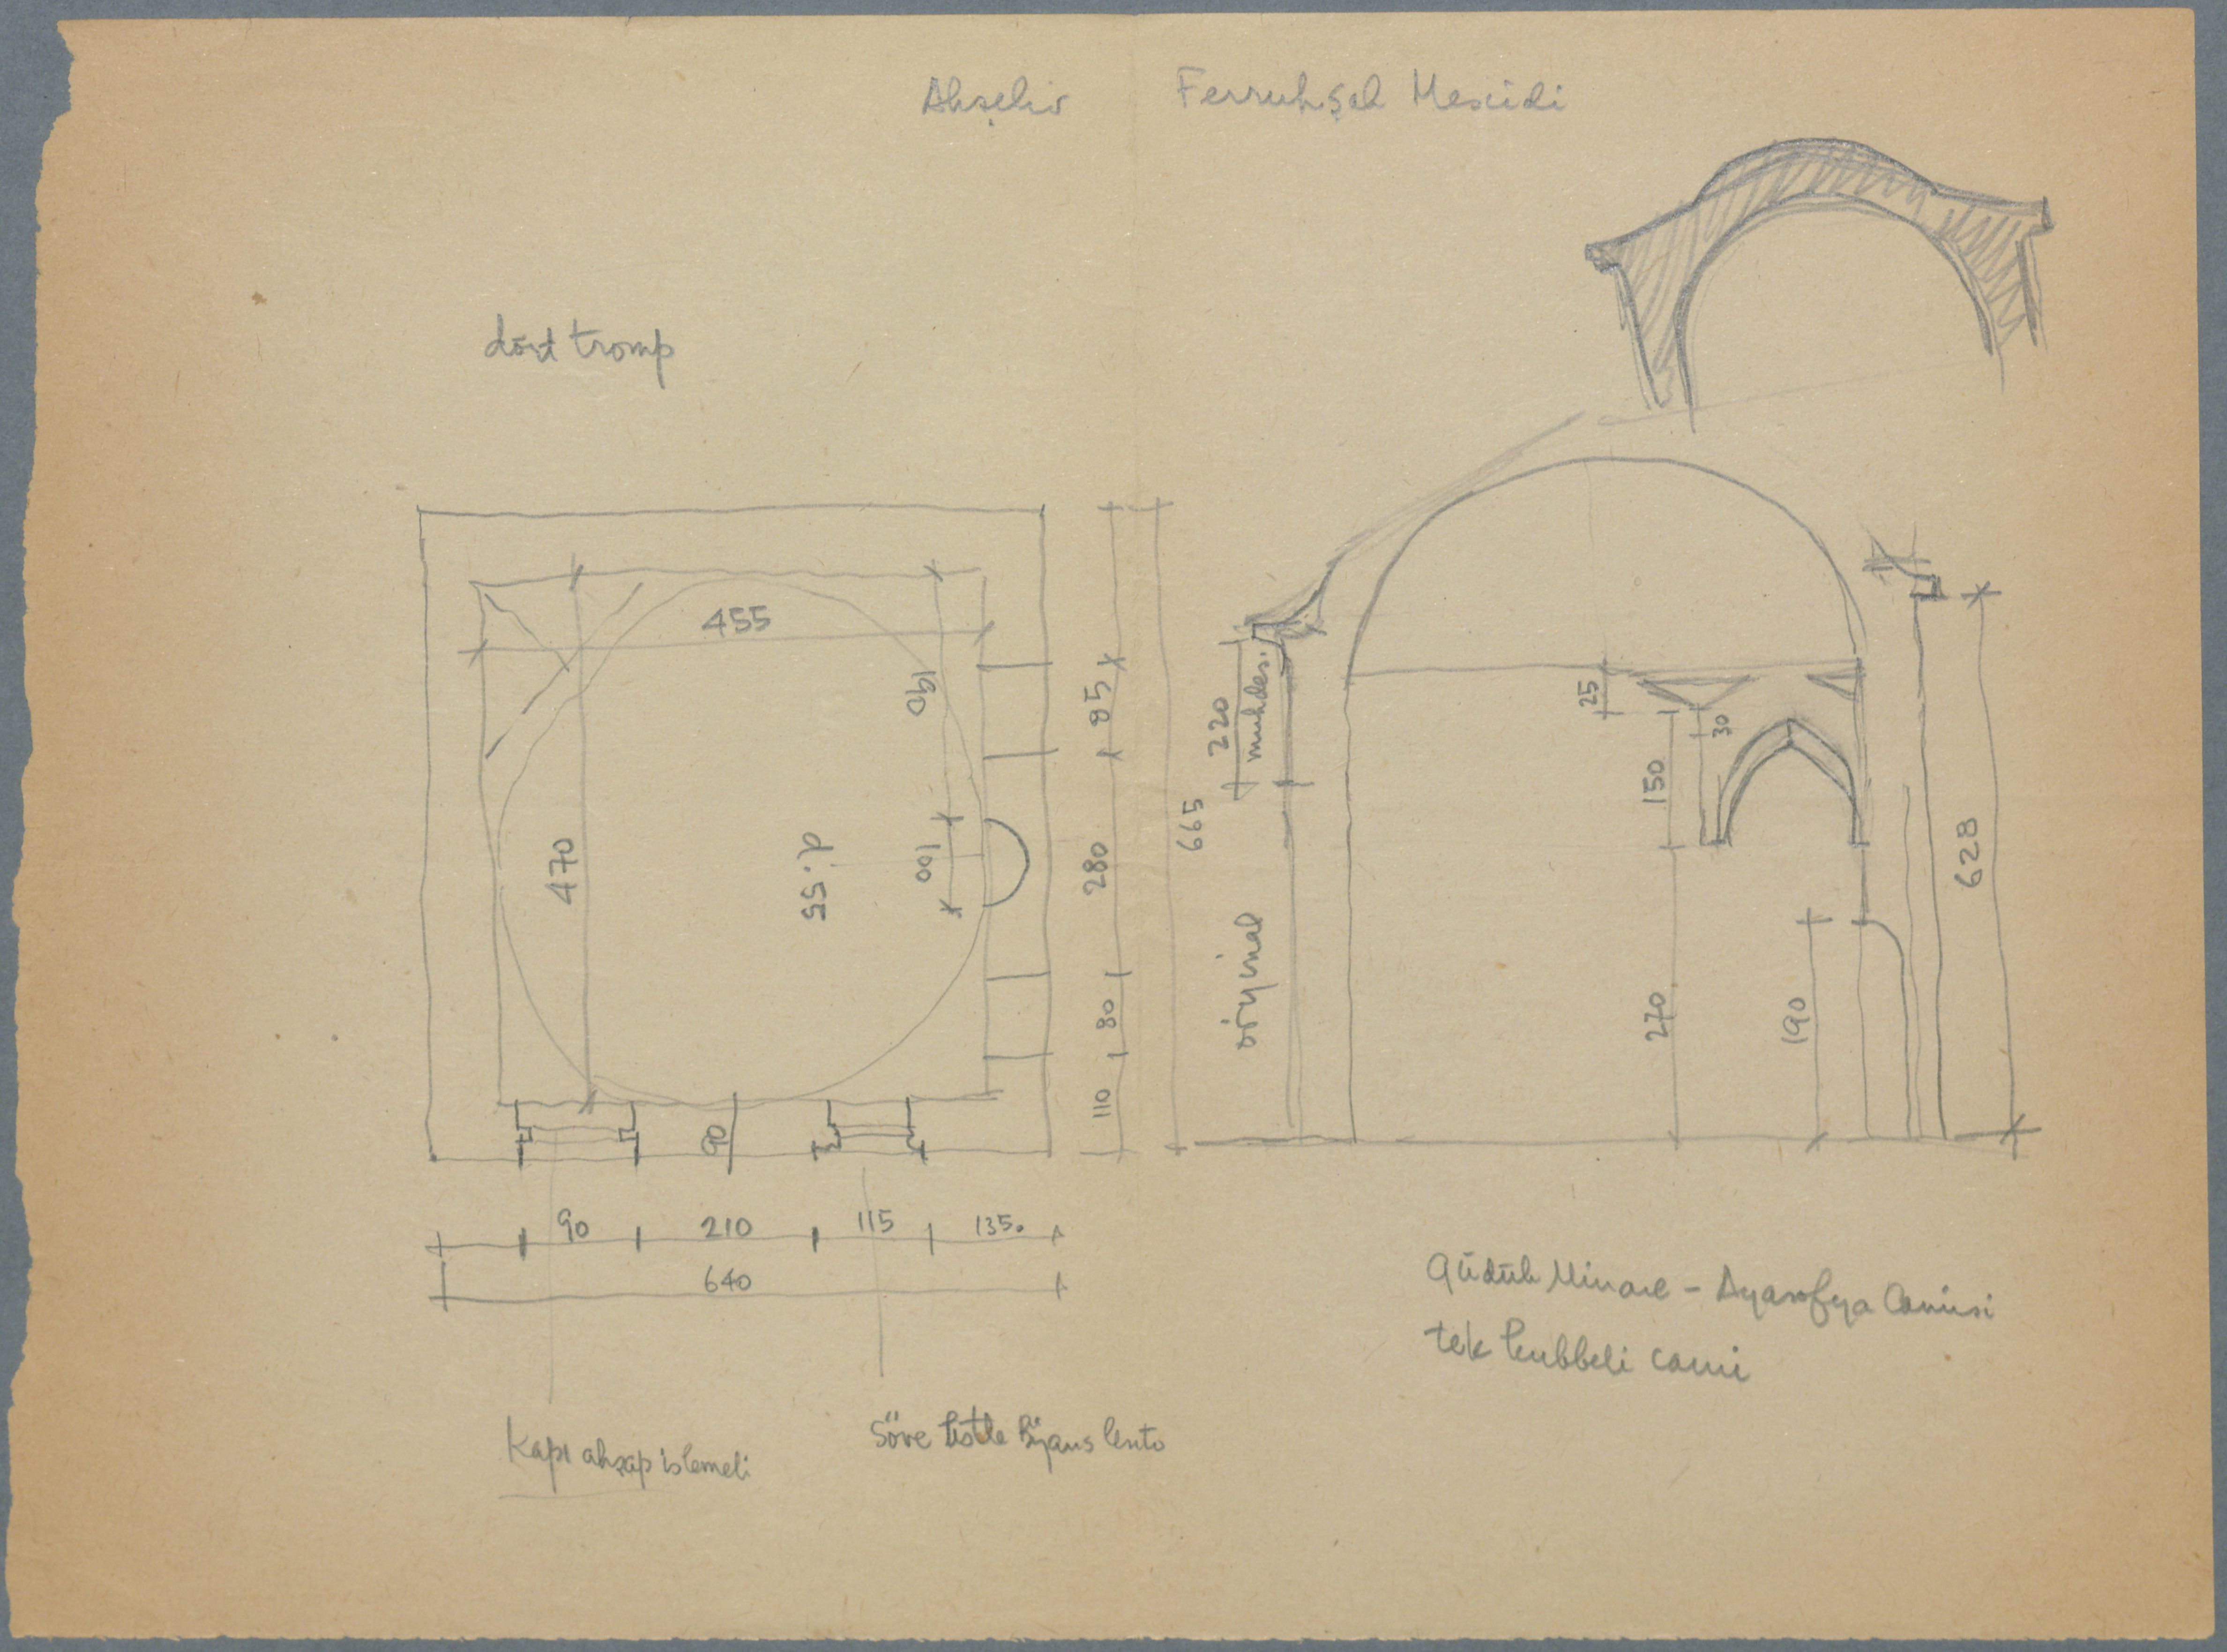 Akşehir Ferruhşah Mescidi
dört tromp
455
190
470
d.55
100
90
85
280
80
110
665
90 210 115 135.
640
Kapı ahşap işlemeli
Söve üstte Bizans lento
220
muhdes.
orijinal
25
30
150
270
190
628
Güdük Minare - Ayasofya Camisi
tek kubbeli cami